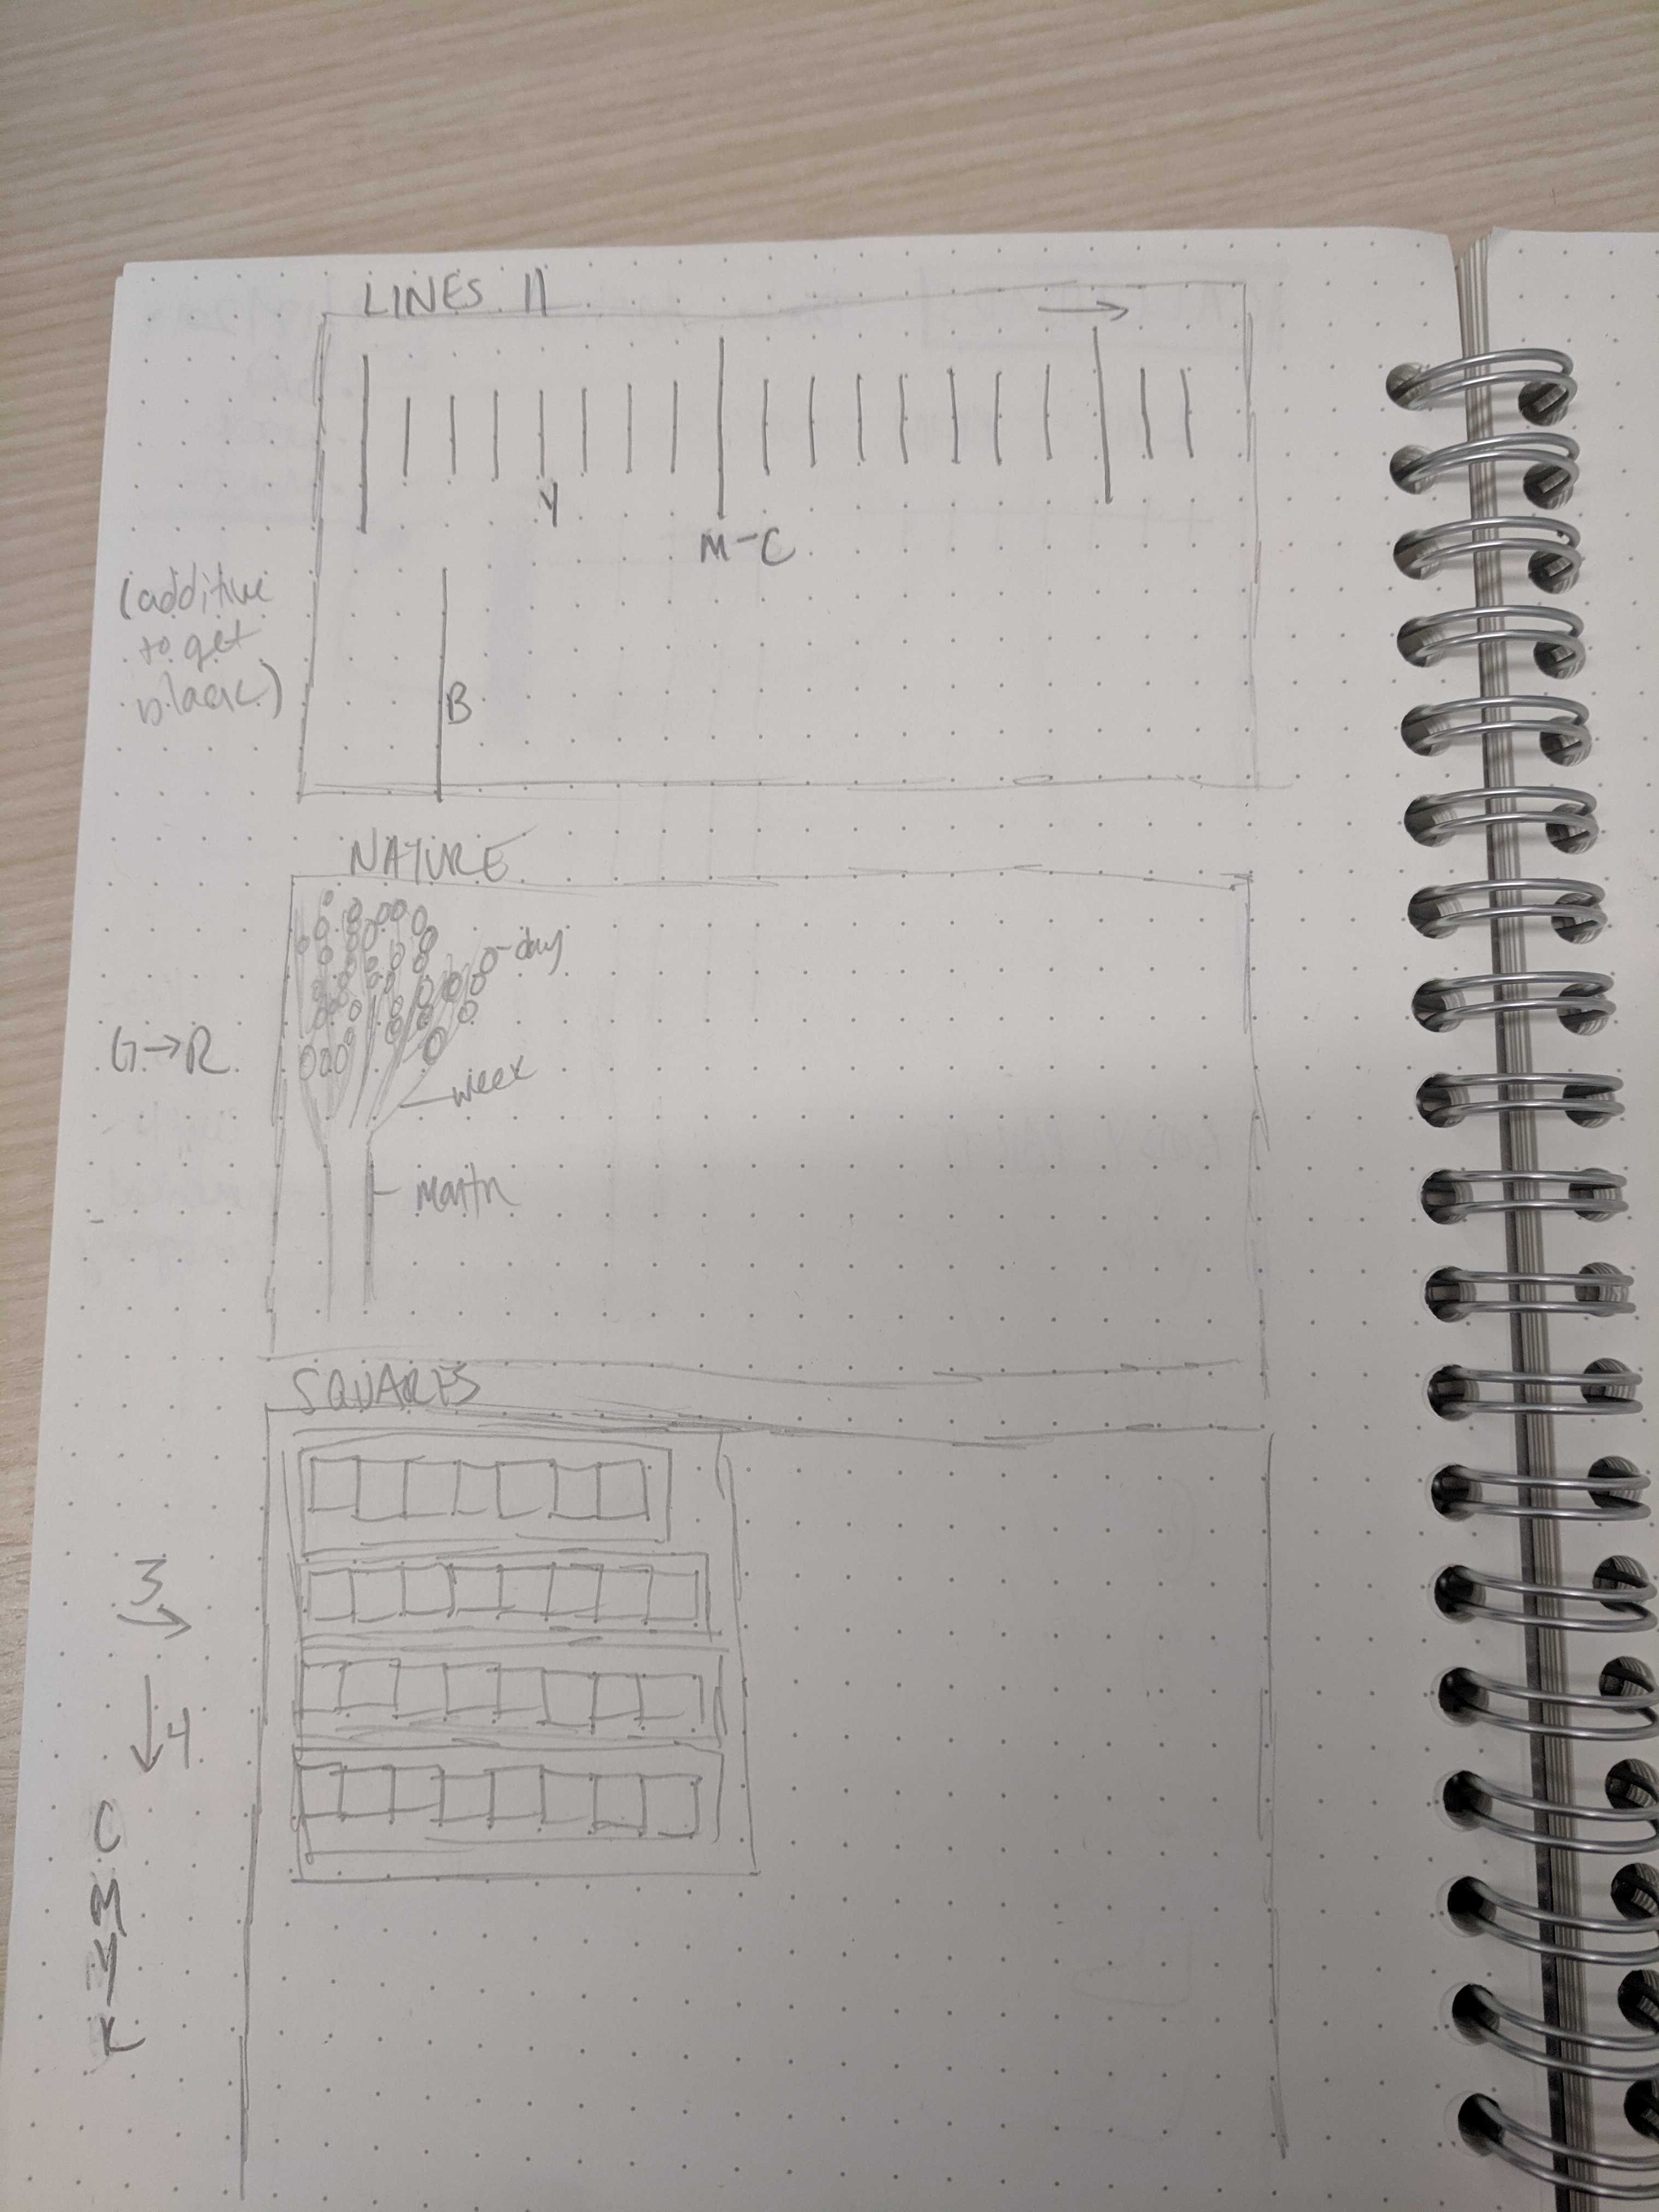 LINES ||
→
Y
M-C
(additive
to get
black)
B
NATURE
day
G→R
week
month
SQUARES
3
→
↓4
C
M
Y
K